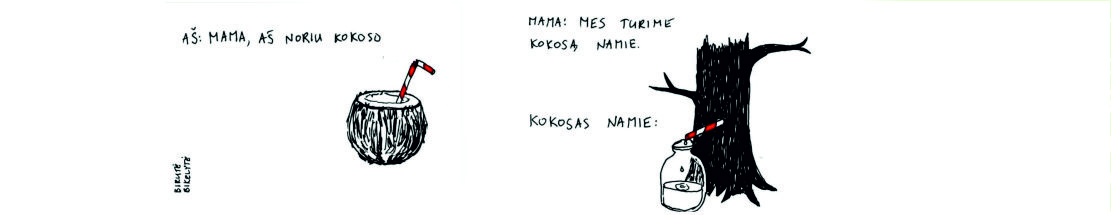 AŠ: MAMA, AŠ NORIU KOKOSO
BIRUTĖ
BIKELYTĖ
MAMA: MES TURIME
KOKOSĄ NAMIE.
KOKOSAS NAMIE: